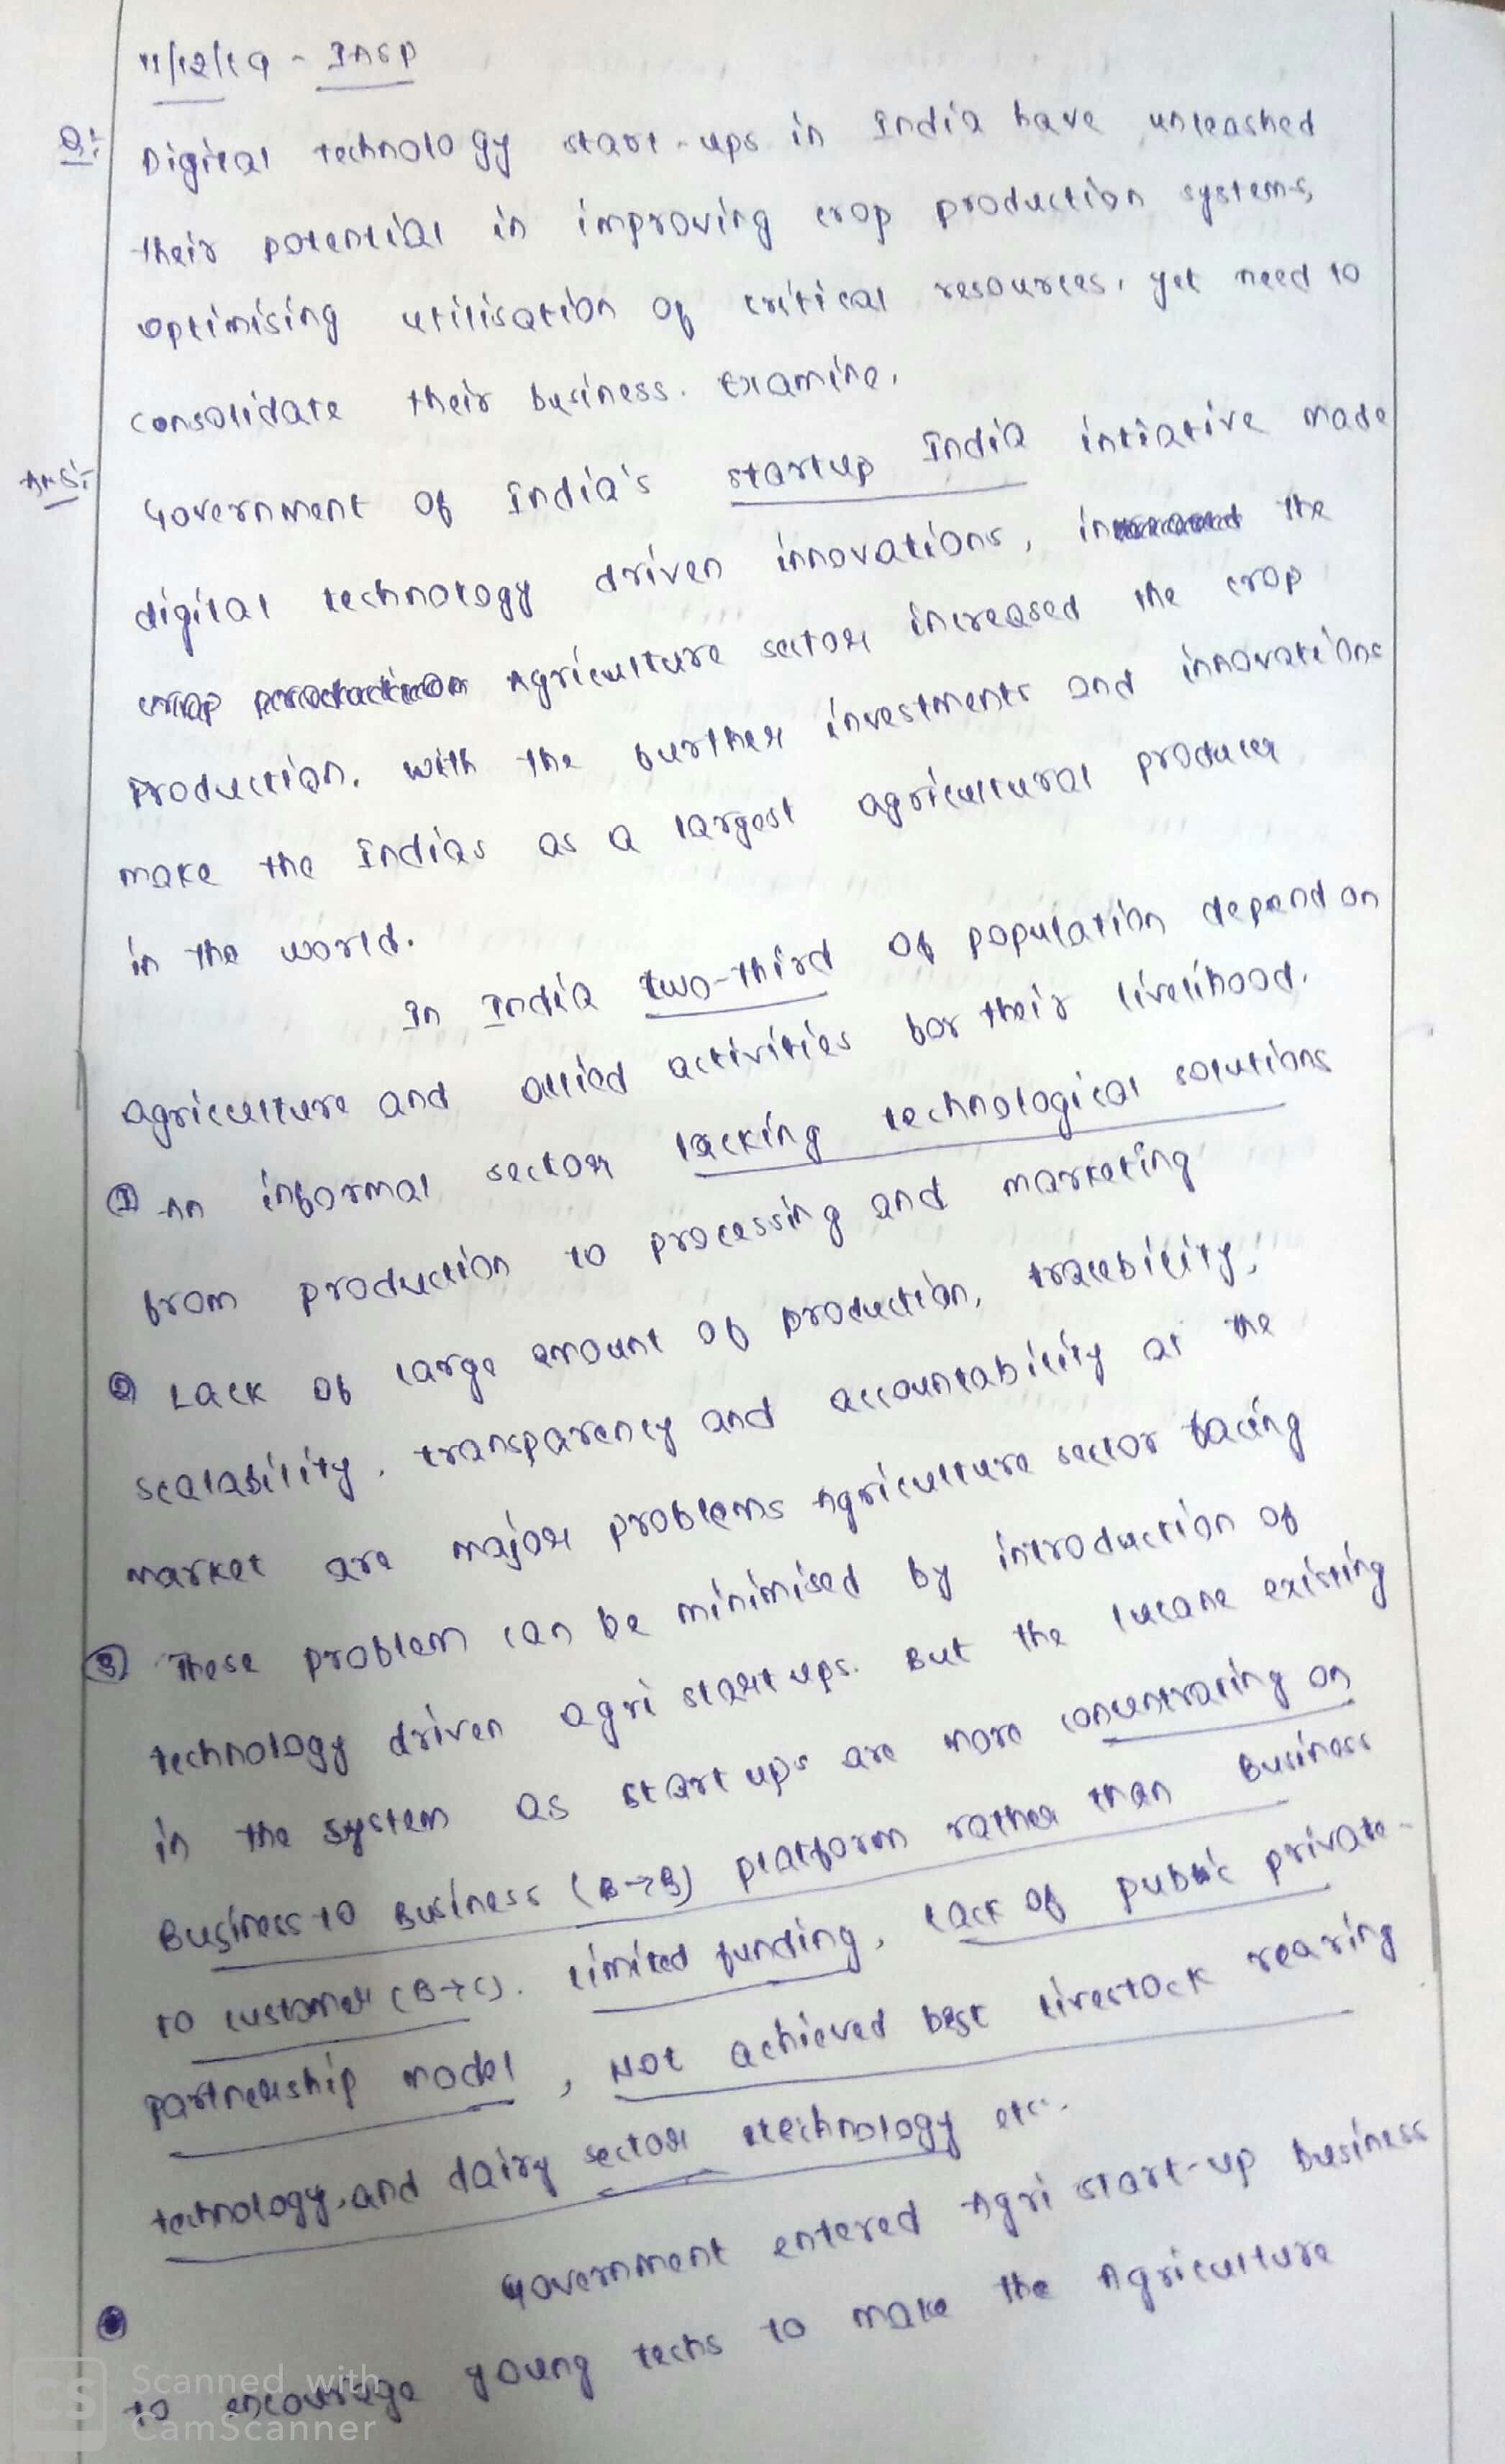 11/12/19 - INSP
Q:- Digital technology start-ups in India have unleashed
their potential in improving crop production systems,
optimising utilisation of critical resources, yet need to
consolidate their business. Examine.
Ans:- Government of India's startup India intiative made
digital technology driven innovations, in the
crop production Agriculture sector increased the crop
production. With the further investments and innovations
make the Indias as a largest agricultural producer
in the world.
In India two-third of population depend on
agriculture and allied activities for their livelihood.
① An informal sector lacking technological solutions
from production to processing and marketing
② Lack of large amount of production, tracebility,
scalability, transparency and accountability at the
market are major problems Agriculture sector facing
③ These problem can be minimised by introduction of
technology driven agri startups. But the lucane existing
in the system as startups are more concentrating on
Business to Business (B→B) platform rather than Business
to customer (B→C). limited funding, lack of public private-
partnership model, Not achieved best livestock rearing
technology, and dairy sector technology etc.
Government entered Agri start-up business
to encourage young techs to make the Agriculture
CS Scanned with
CamScanner